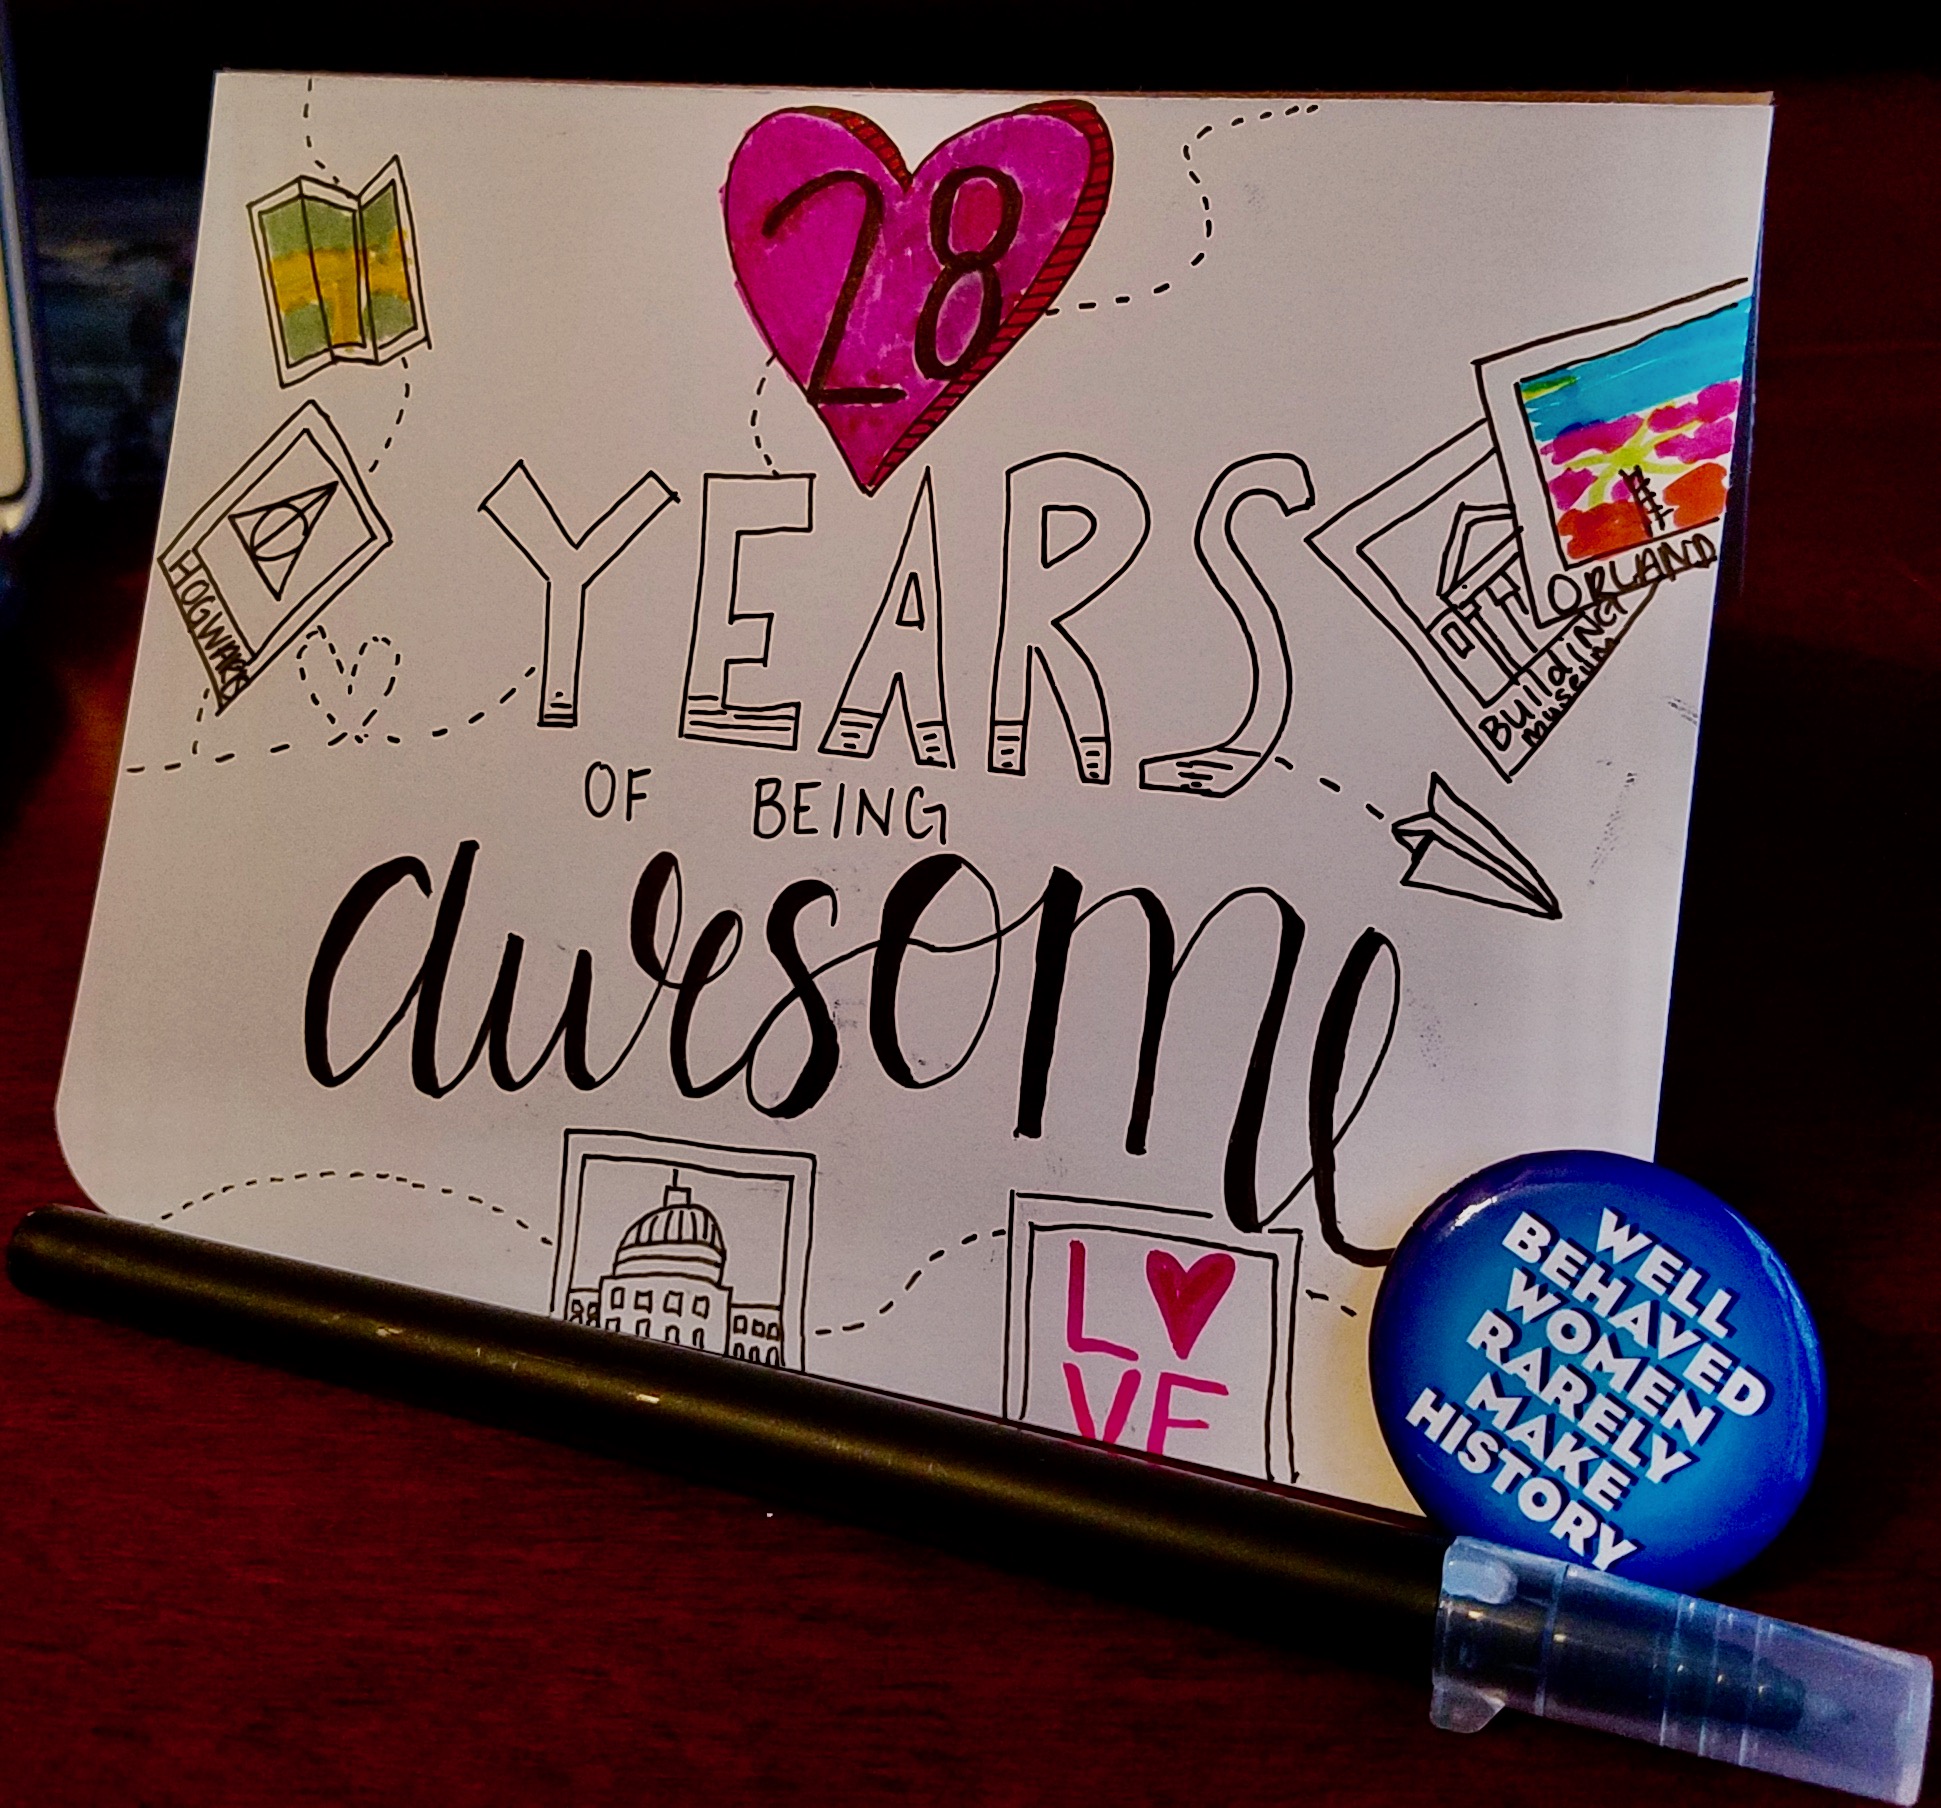 28
YEARS
OF BEING
awesome
HOGWARTS
ORLAND
BUildING
museum
L♥
VE
WELL
BEHAVED
WOMEN
RARELY
MAKE
HISTORY